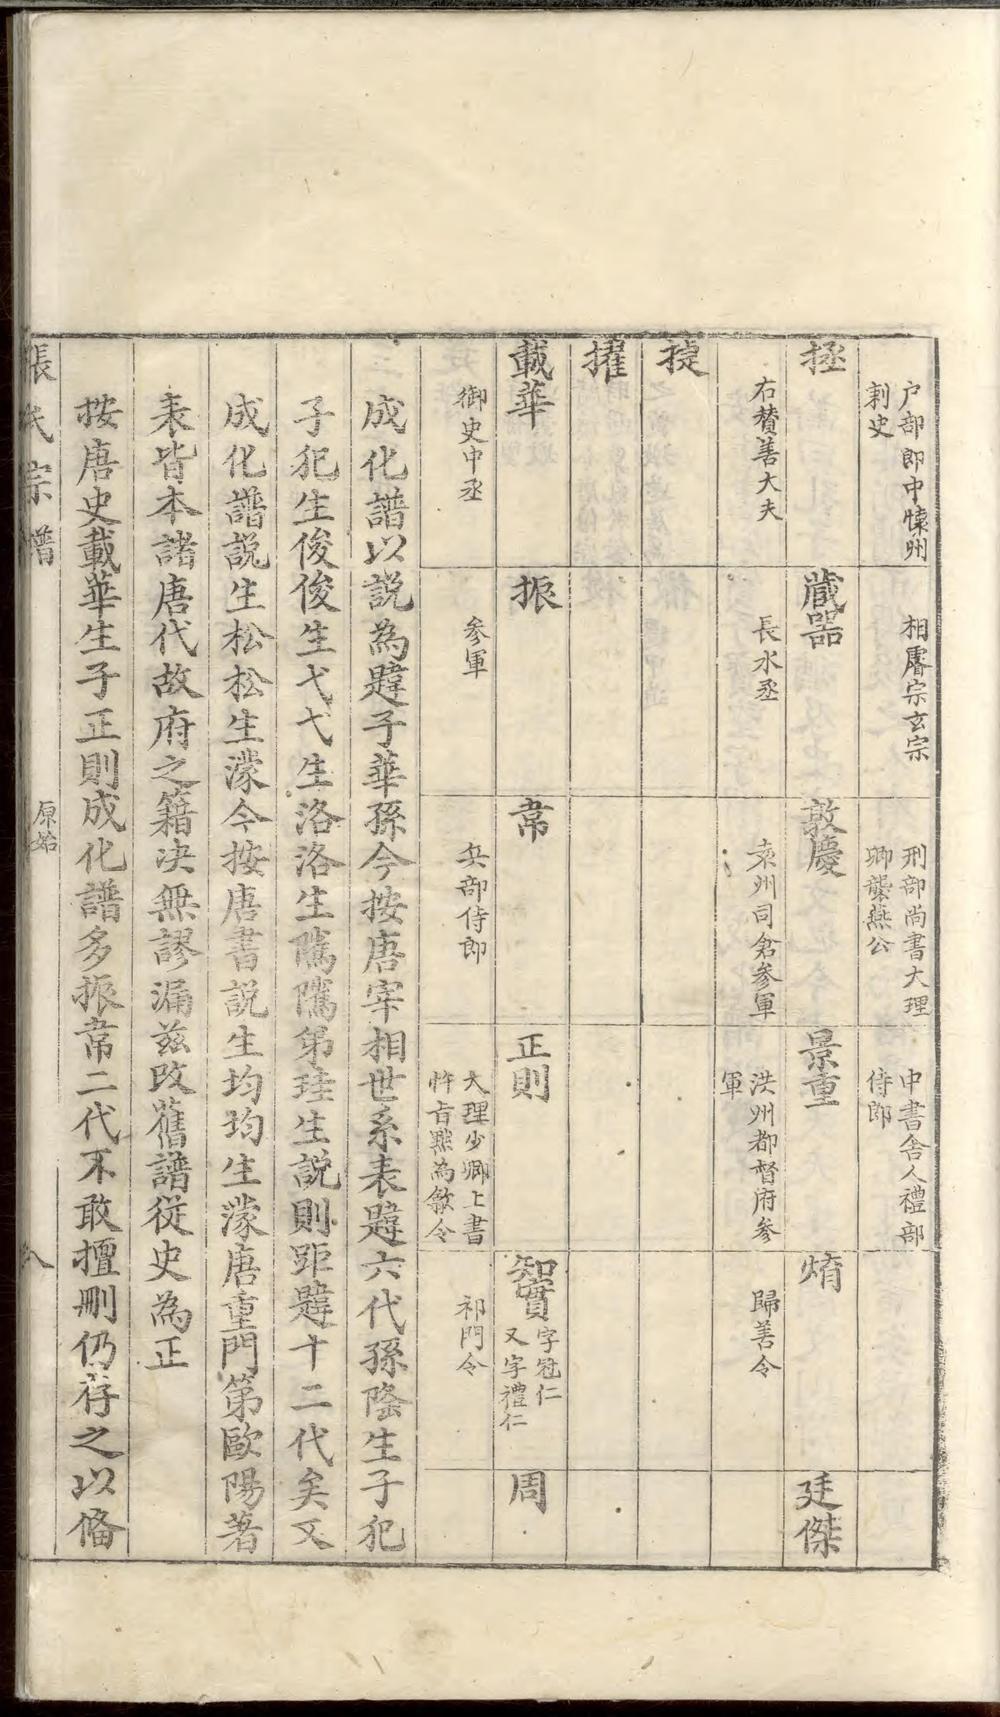 户部郎中懷州
刺史
相睿宗玄宗
刑部尚書大理
卿襲燕公
中書舍人禮部
侍郎
拯
藏器
敦慶
景重
焴
廷傑
右贊善大夫
長水丞
袁州司倉參軍
洪州都督府參
軍
歸善令
掟
擢
載華
振
常
正則
知實
字冠仁
又字禮仁
周
御史中丞
參軍
兵部侍郎
大理少卿上書
忤旨黜為歙令
祁門令
成化譜以説為韙子華孫今按唐宰相世系表韙六代孫隆生子犯
子犯生俊俊生弋弋生洛洛生隲隲第珪生説則距韙十二代矣又
成化譜説生松松生濛今按唐書説生均均生濛唐重門第歐陽著
表皆本諸唐代故府之籍决無謬漏兹改舊譜從史為正
按唐史載華生子正則成化譜多振常二代不敢擅刪仍存之以俻
張氏宗譜
原始
八